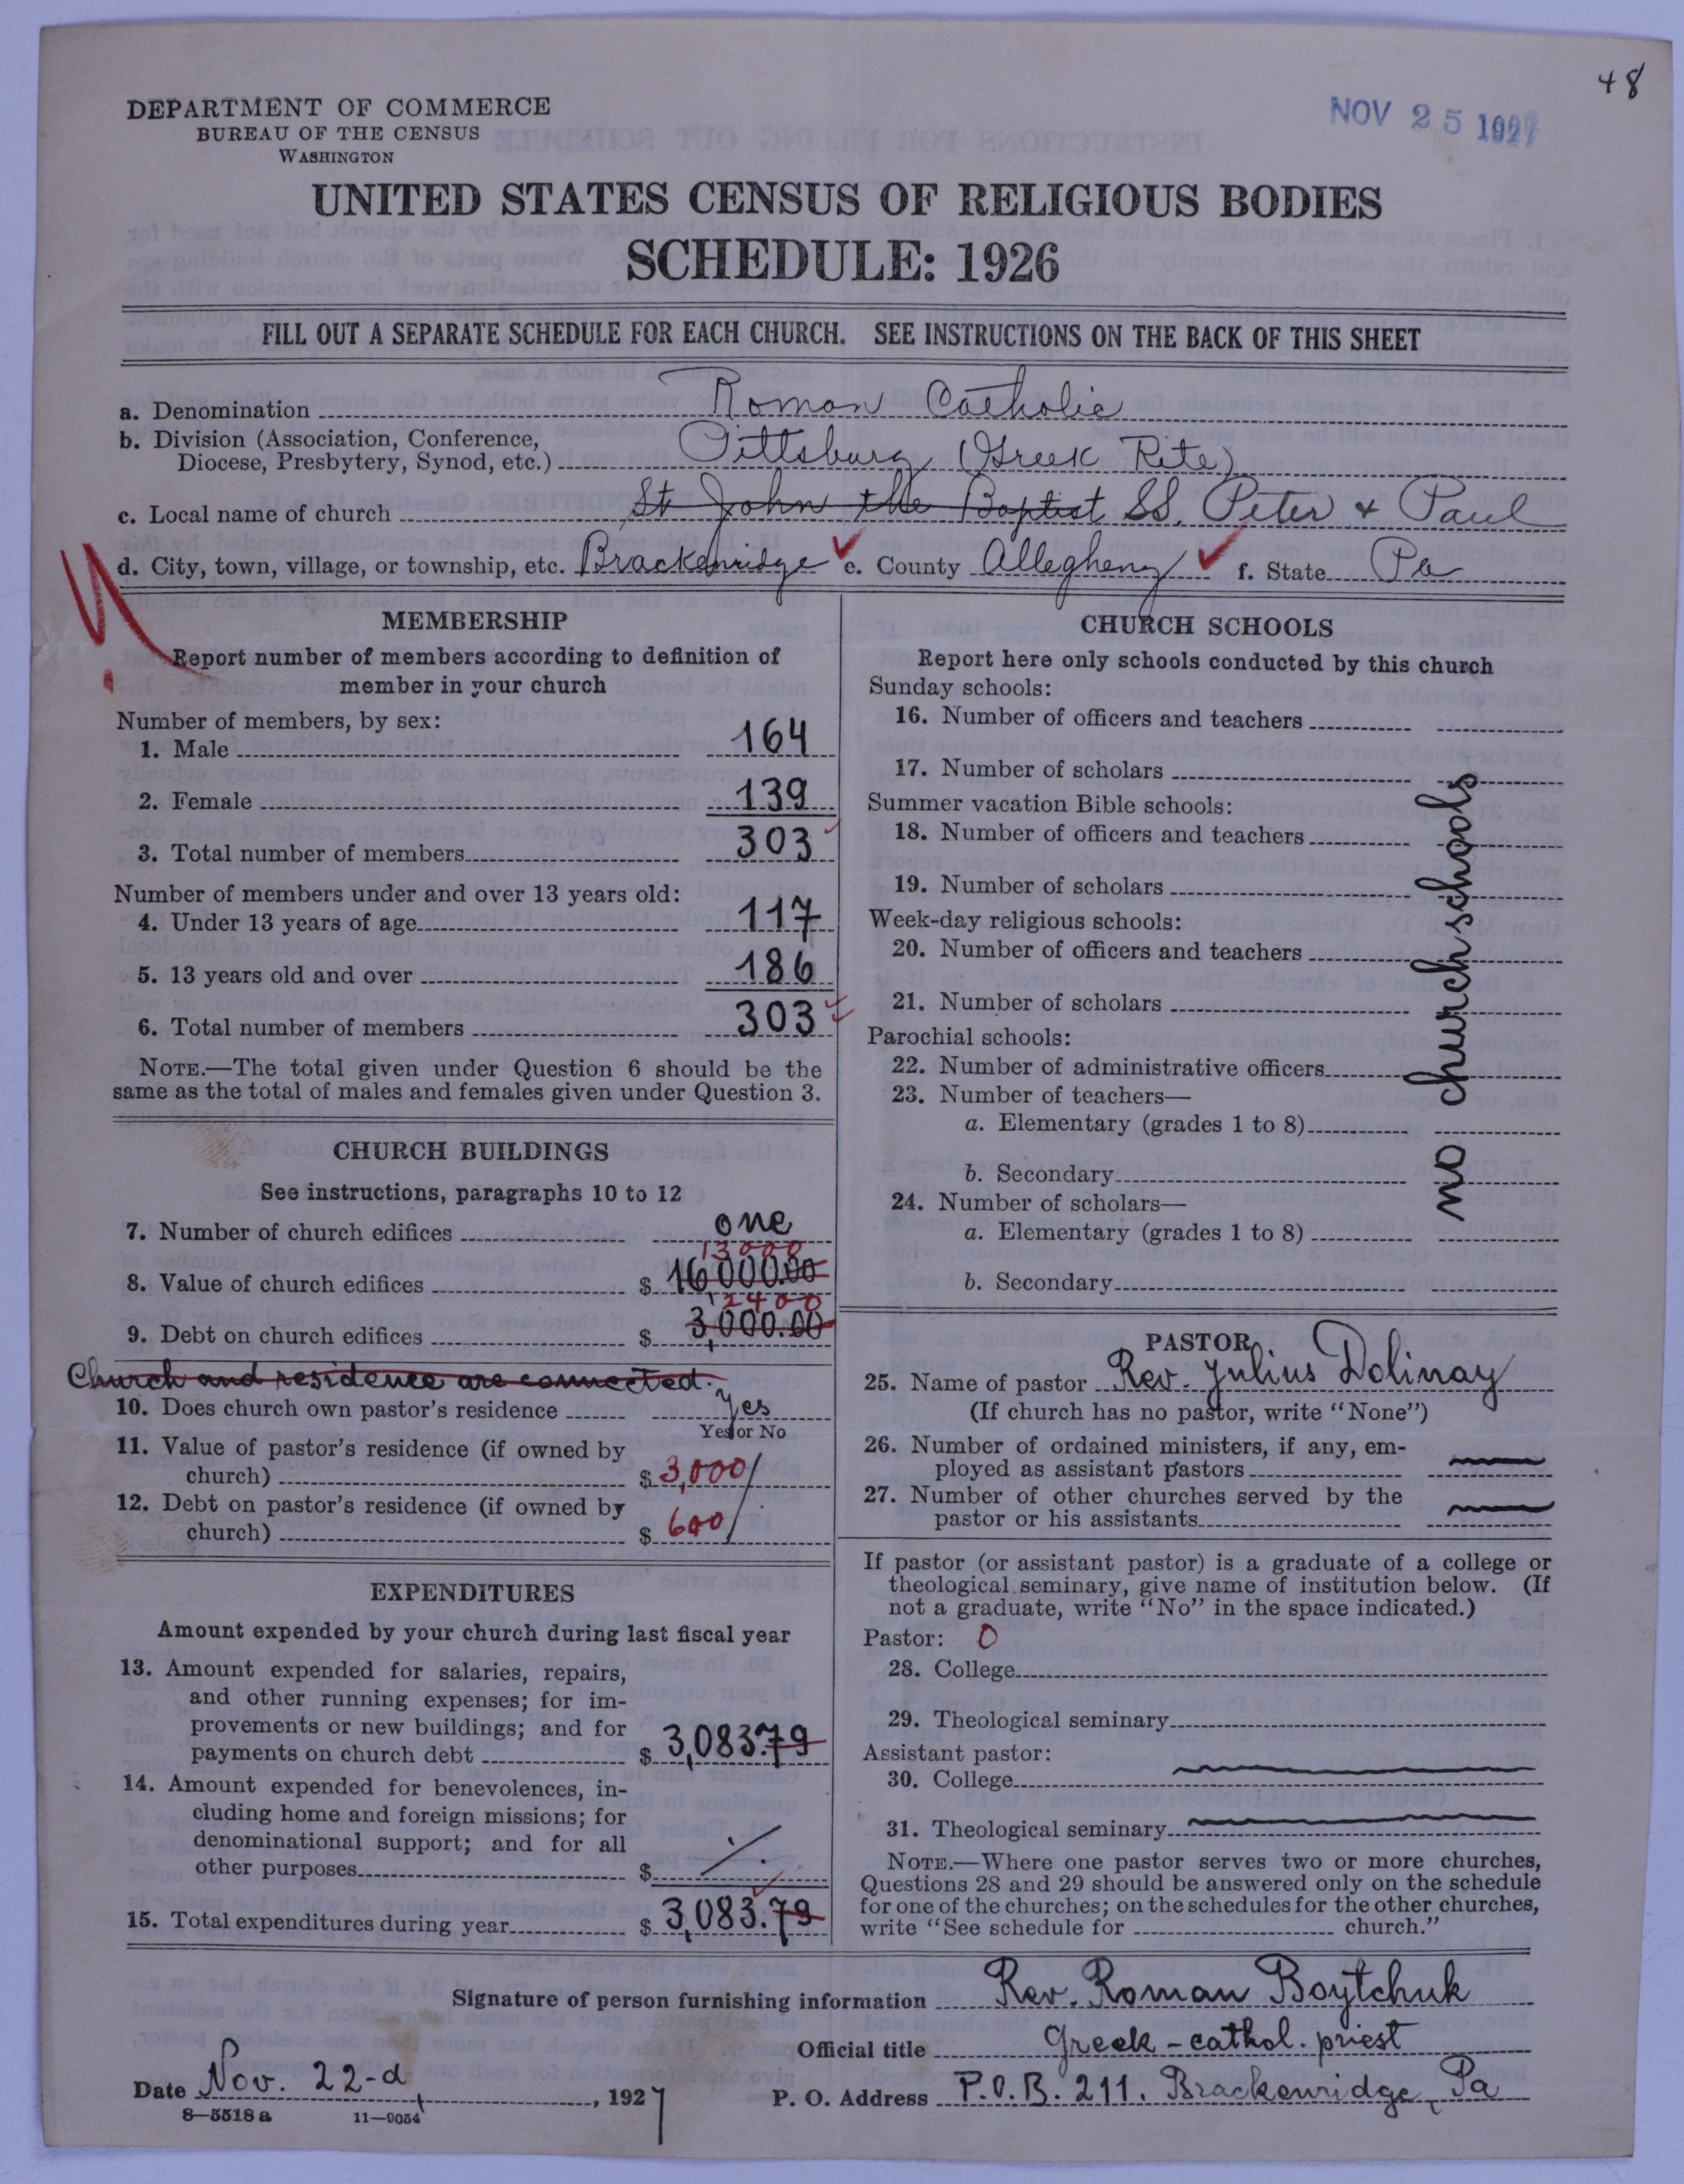 48
NOV 25 1927
DEPARTMENT OF COMMERCE
BUREAU OF THE CENSUS
WASHINGTON
UNITED STATES CENSUS OF RELIGIOUS BODIES
SCHEDULE: 1926
FILL OUT A SEPARATE SCHEDULE FOR EACH CHURCH. SEE INSTRUCTIONS ON THE BACK OF THIS SHEET
a. Denomination Roman Catholic
b. Division (Association, Conference,
Diocese, Presbytery, Synod, etc.) Pittsburg (Greek Rite)
c. Local name of church St John the Baptist SS. Peter & Paul
d. City, town, village, or township, etc. Brackenridge e. County Allegheny f. State Pa
MEMBERSHIP
Report number of members according to definition of
member in your church
Number of members, by sex:
1. Male 164
2. Female 139
3. Total number of members 303
Number of members under and over 13 years old:
4. Under 13 years of age 117
5. 13 years old and over 186
6. Total number of members 303
NOTE.—The total given under Question 6 should be the
same as the total of males and females given under Question 3.
CHURCH BUILDINGS
See instructions, paragraphs 10 to 12
7. Number of church edifices one
13000
8. Value of church edifices $ 16000.00
2400
9. Debt on church edifices $ 3,000.00
Church and residence are connected.
10. Does church own pastor's residence yes
Yes or No
11. Value of pastor's residence (if owned by
church) $ 3,000
12. Debt on pastor's residence (if owned by
church) $ 600
EXPENDITURES
Amount expended by your church during last fiscal year
13. Amount expended for salaries, repairs,
and other running expenses; for im-
provements or new buildings; and for
payments on church debt $ 3,083.79
14. Amount expended for benevolences, in-
cluding home and foreign missions; for
denominational support; and for all
other purposes $ ./.
15. Total expenditures during year $ 3,083.79
CHURCH SCHOOLS
Report here only schools conducted by this church
Sunday schools:
16. Number of officers and teachers
17. Number of scholars
Summer vacation Bible schools:
18. Number of officers and teachers
19. Number of scholars
Week-day religious schools:
20. Number of officers and teachers
21. Number of scholars
Parochial schools:
22. Number of administrative officers
23. Number of teachers—
a. Elementary (grades 1 to 8)
b. Secondary
24. Number of scholars—
a. Elementary (grades 1 to 8)
b. Secondary
no church schools
PASTOR
25. Name of pastor Rev. Julius Dolinay
(If church has no pastor, write "None")
26. Number of ordained ministers, if any, em-
ployed as assistant pastors
27. Number of other churches served by the
pastor or his assistants
If pastor (or assistant pastor) is a graduate of a college or
theological seminary, give name of institution below. (If
not a graduate, write "No" in the space indicated.)
Pastor: 0
28. College
29. Theological seminary
Assistant pastor:
30. College
31. Theological seminary
NOTE.—Where one pastor serves two or more churches,
Questions 28 and 29 should be answered only on the schedule
for one of the churches; on the schedules for the other churches,
write "See schedule for church."
Signature of person furnishing information Rev. Roman Boytchuk
Official title Greek-cathol. priest
Date Nov. 22-d, 1927 P. O. Address P.O.B. 211. Brackenridge, Pa
8—5518 a 11—9054